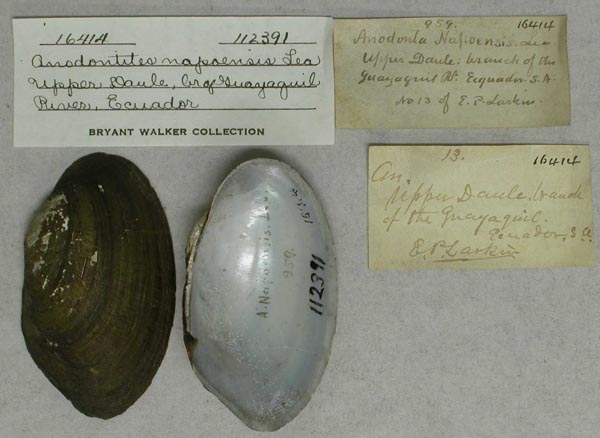 16414 112391
Anodontites napoensis Lea
Upper Daule, br of Guayaquil
River, Ecuador
BRYANT WALKER COLLECTION
959. 16414
Anodonta Napoensis. Lea
Upper Daule. branch of the
Guayaquil R. Ecquador. S.A.
No 13 of E. P. Larkin
13. 16414
An.
Upper Daule. branch
of the Guayaquil.
Ecuador, S A
E. P. Larkin
A. Napoensis. Lea
959.
112391